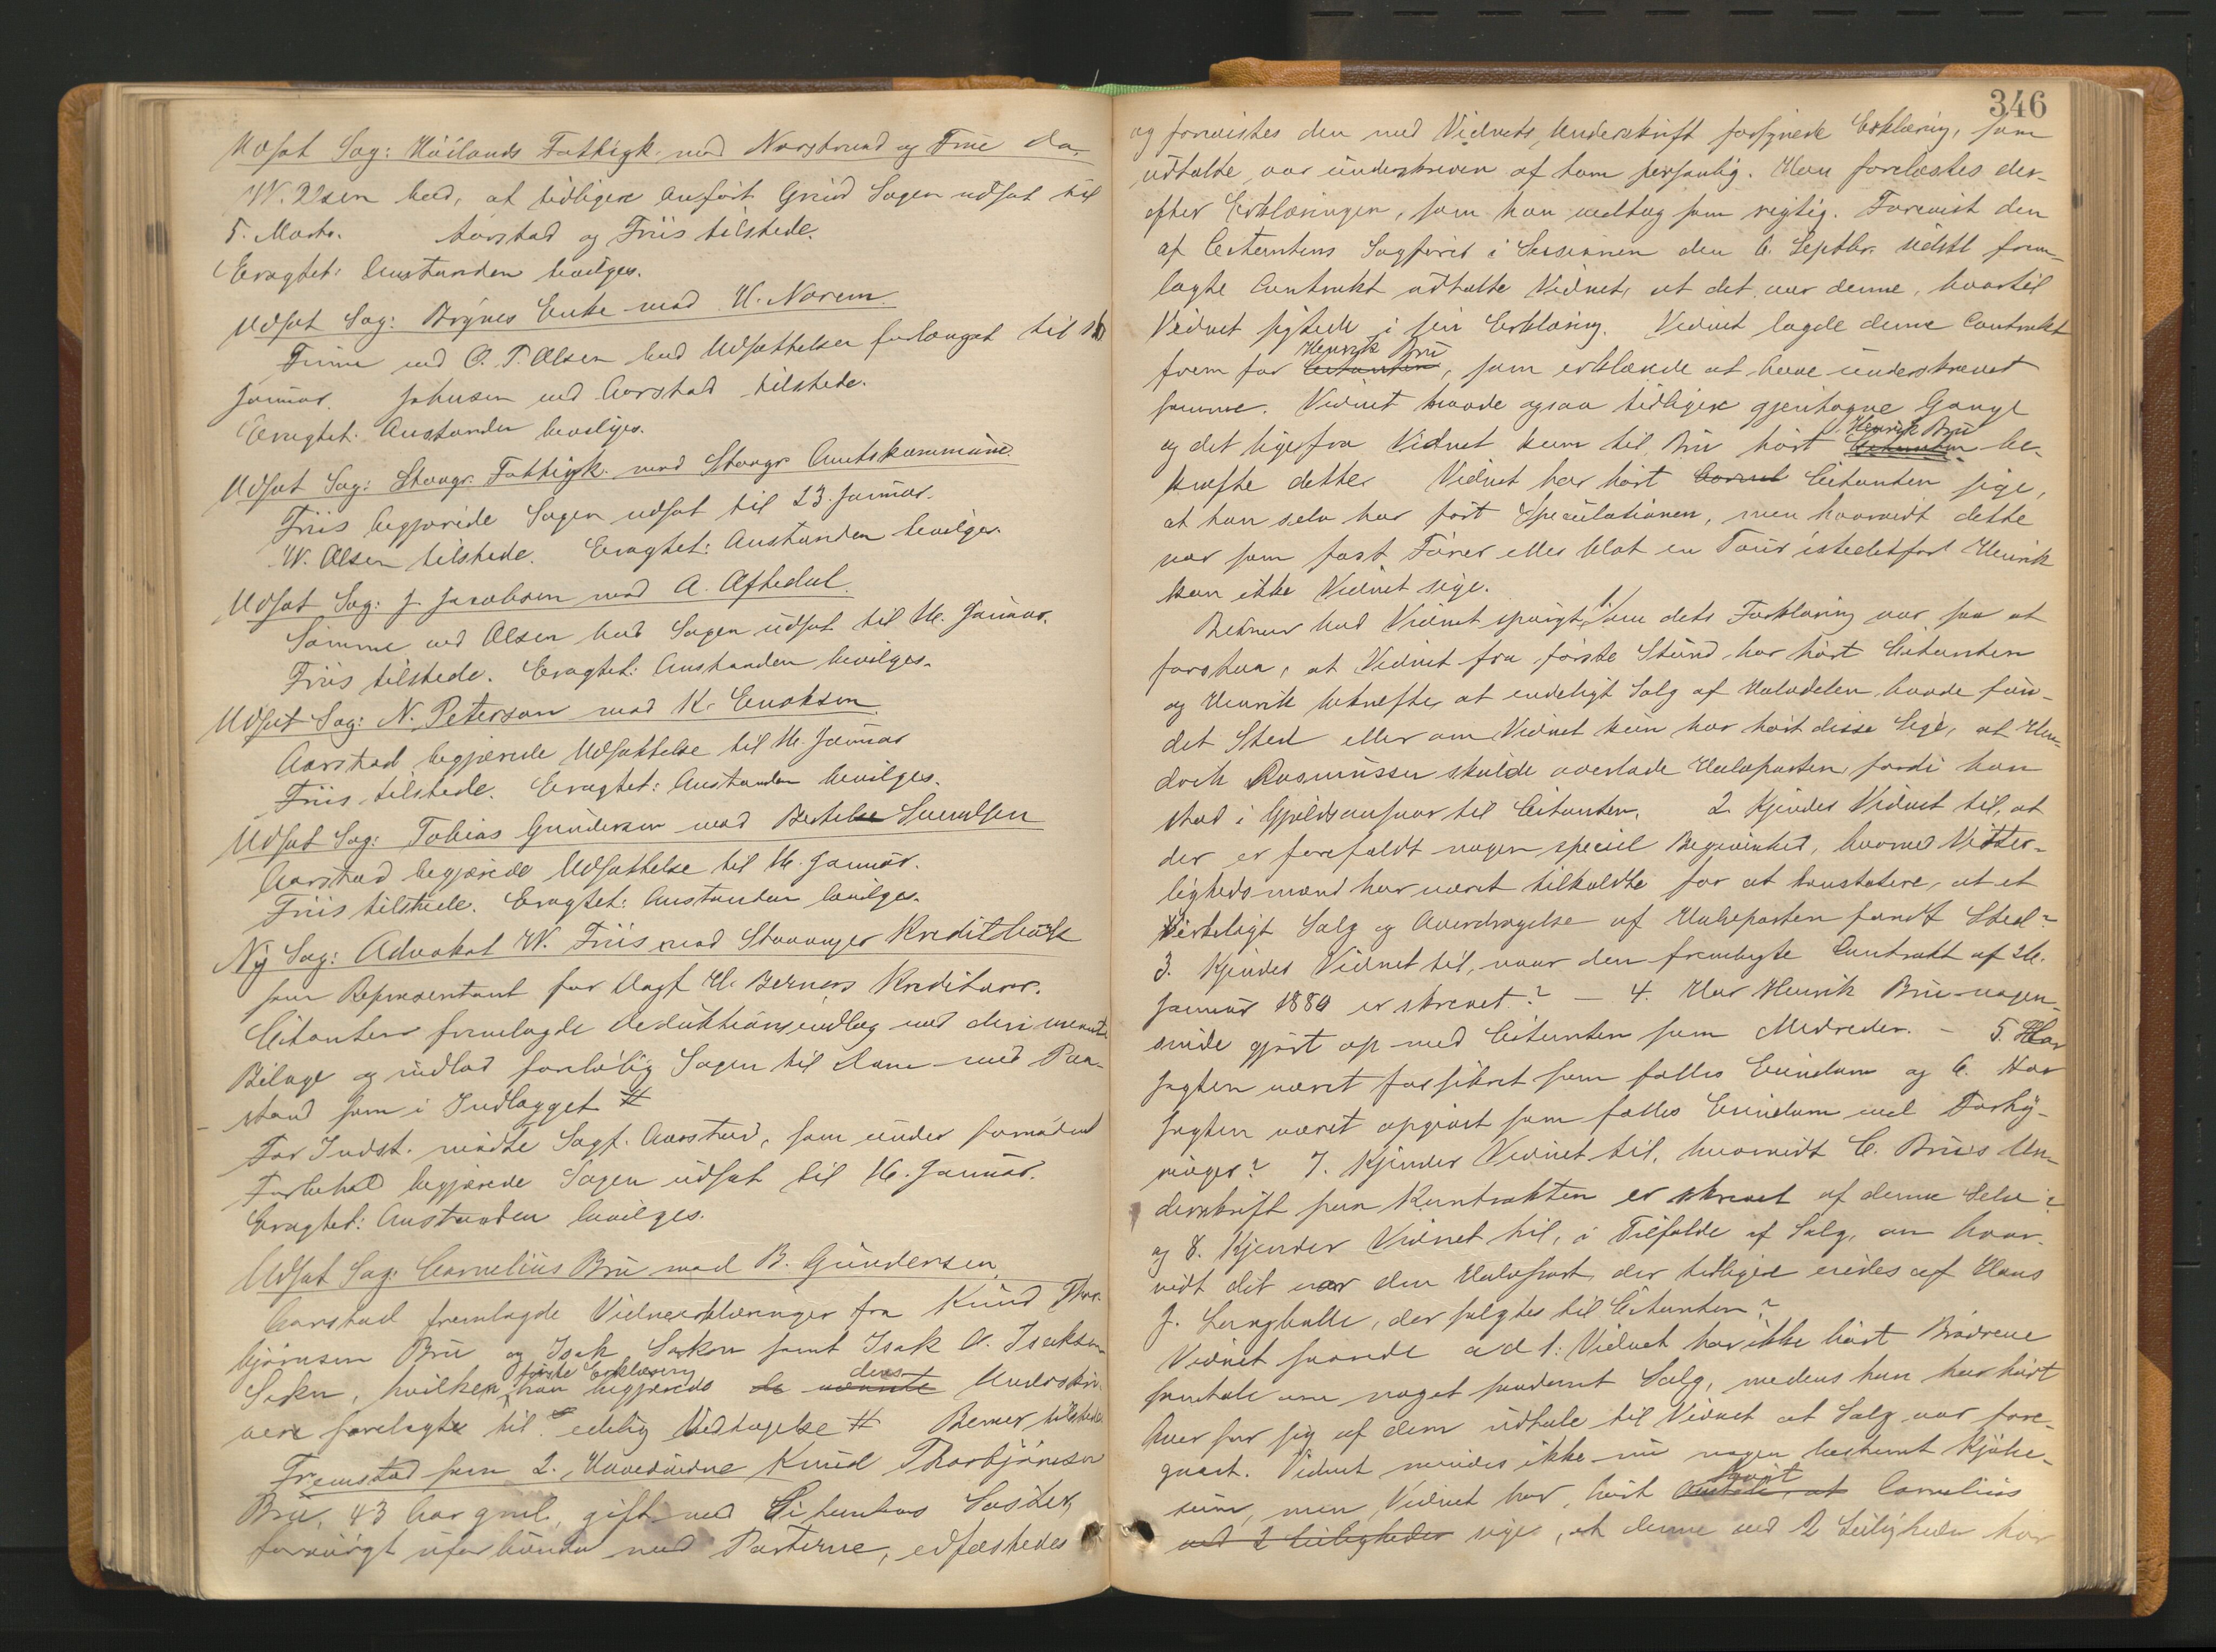 Udsat Sag: Höilands Fattigk. mod Narstrand og Finö do.
W. Olsen bad, af tidligere anfört Grund Sagen udsat til
5. Marts. Aarstad og Friis tilstede.
Eragtet: Anstanden bevilges.
Udsat Sag: Brynes Enke mod U. Norem.
ved O. T. Olsen bad Udsættelsen forlænget til
Januar. Johnsen ved Aarstad tilstede.
Eragtet: Anstanden bevilges.
Udsat Sag: Stavgr. Fattigk. mod Stavgr. Amtskommune.
Friis begjærede Sagen udsat til 23. Januar.
W. Olsen tilstede. Eragtet: Anstanden bevilges.
Udsat Sag: J. Jacobsen mod A. Aftedal.
Sömme ved Olsen bad Sagen udsat til 16. Januar.
Friis tilstede. Eragtet: Anstanden bevilges.
Udsat Sag: N. Peterson mod K. Enoksen.
Aarstad begjærede Udsættelse til 16. Januar
Friis tilstede. Eragtet: Anstanden bevilges.
Udsat Sag: Tobias Gundersen mod Svendsen
Aarstad begjærede Udsættelse til 16. Januar.
Friis tilstede. Eragtet: Anstanden bevilges.
Ny Sag: Advokat W. Friis mod Stavanger Kreditbank
som Repræsentant for Sagf. H. Berners Kreditorer.
Citanten fremlagde Deduktionsindlæg med deri nævnte
Bilage og indlod foreløbig Sagen til Dom med Paa-
stand som i Indlægget #
For Indst. mödte Sagf. Aarstad, som under fornödent
Forbehold begjærede Sagen udsat til 16. Januar.
Eragtet: Anstanden bevilges.
Udsat Sag: Cornelius Bru mod B. Gundersen.
Aarstad fremlagde Vidneerklæringer fra Knud Thor-
björnsen Bru og Isak samt Isak A. Isaksen
första Erklæring dens
hvilken han begjærede de nævnte Underskri-
vere forelagte til edelig Vedtagelse # Berner tilstede
Fremstod som 2. Hovedvidne Knud Thorbjörnsen
Bru, 43 Aar gml., gift med Citantens Söster,
forövrigt uforbunden med Parterne, edfæstedes
346
og forevistes den med Vidnets Underskrift forsynede Erklæring, som
udtalte var underskreven af ham personlig. Han forelæstes der-
efter Erklæringen, som han vedtog som rigtig. Forevist den
af Citantens Sagförer i Sessionen den 6. Septbr. sidstl. frem-
lagte Contrakt udtalte Vidnet, at det var denne, hvortil
Vidnet sigtede i sin Erklæring. Vidnet lagde denne Contrakt
Henrik Bru
frem for Citanten, som erklærede at have underskrevet
samme. Vidnet havde ogsaa tidligere gjentagne Gange
Henrik Bru
og det ligefra Vidnet kom til Bru hört Citanten be-
kræfte dette. Vidnet har hört Citanten sige,
at han selv har fört Speculationen, men hvorvidt dette
var som fast Förer eller blot en Tour istedetfor Henrik
kan ikke Vidnet sige.
Berner bad Vidnet spurgt, 1/ om dets Forklaring var saa at
forstaa, at Vidnet fra förste Stund har hört Citanten
og Henrik bekræfte, at endeligt Salg af Halvdelen havde fun-
det Sted eller om Vidnet kun har hört disse sige, at Hen-
drik Rasmussen skulde overlade Halvparten, fordi han
stod i Gjældsansvar til Citanten. 2. Kjendes Vidnet til, at
der er forefaldt nogen speciel Begivenhed, hvorved Vitter-
lighedsmænd har været tilkaldte for at konstatere, at et
virkeligt Salg og Overdragelse af Halvparten fandt Sted?
3. Kjendes Vidnet til, naar den fremlagte Contrakt af 26.
Januar 1880 er skrevet? — 4. Har Henrik Bru nogen-
sinde gjort op med Citanten som Medreder. – 5. Har
Jagten været forsikret som fælles Eiendom og 6. Har
Jagten været opgivet som fælles Eiendom ved Forhy-
ringer? 7. Kjender Vidnet til, hvorvidt C. Brus Un-
derskrift paa Kontrakten er skrevet af denne Selv?
og 8. Kjender Vidnet til, i Tilfælde af Salg, om hvor-
vidt det var den Halvpart, der tidligere eiedes af Hans
J. der solgtes til Citanten?
Vidnet svarede ad 1: Vidnet har ikke hört Brödrene
samtale om noget saadant Salg, medens han har hört
hver for sig af dem udtale til Vidnet at Salg var fore-
gaaet. Vidnet mindes ikke nu nogen bestemt Kjöbe-
sum, men Vidnet har hört Cornelius
ved 2 Leiligheder sige, at denne ved 2 Leiligheder har